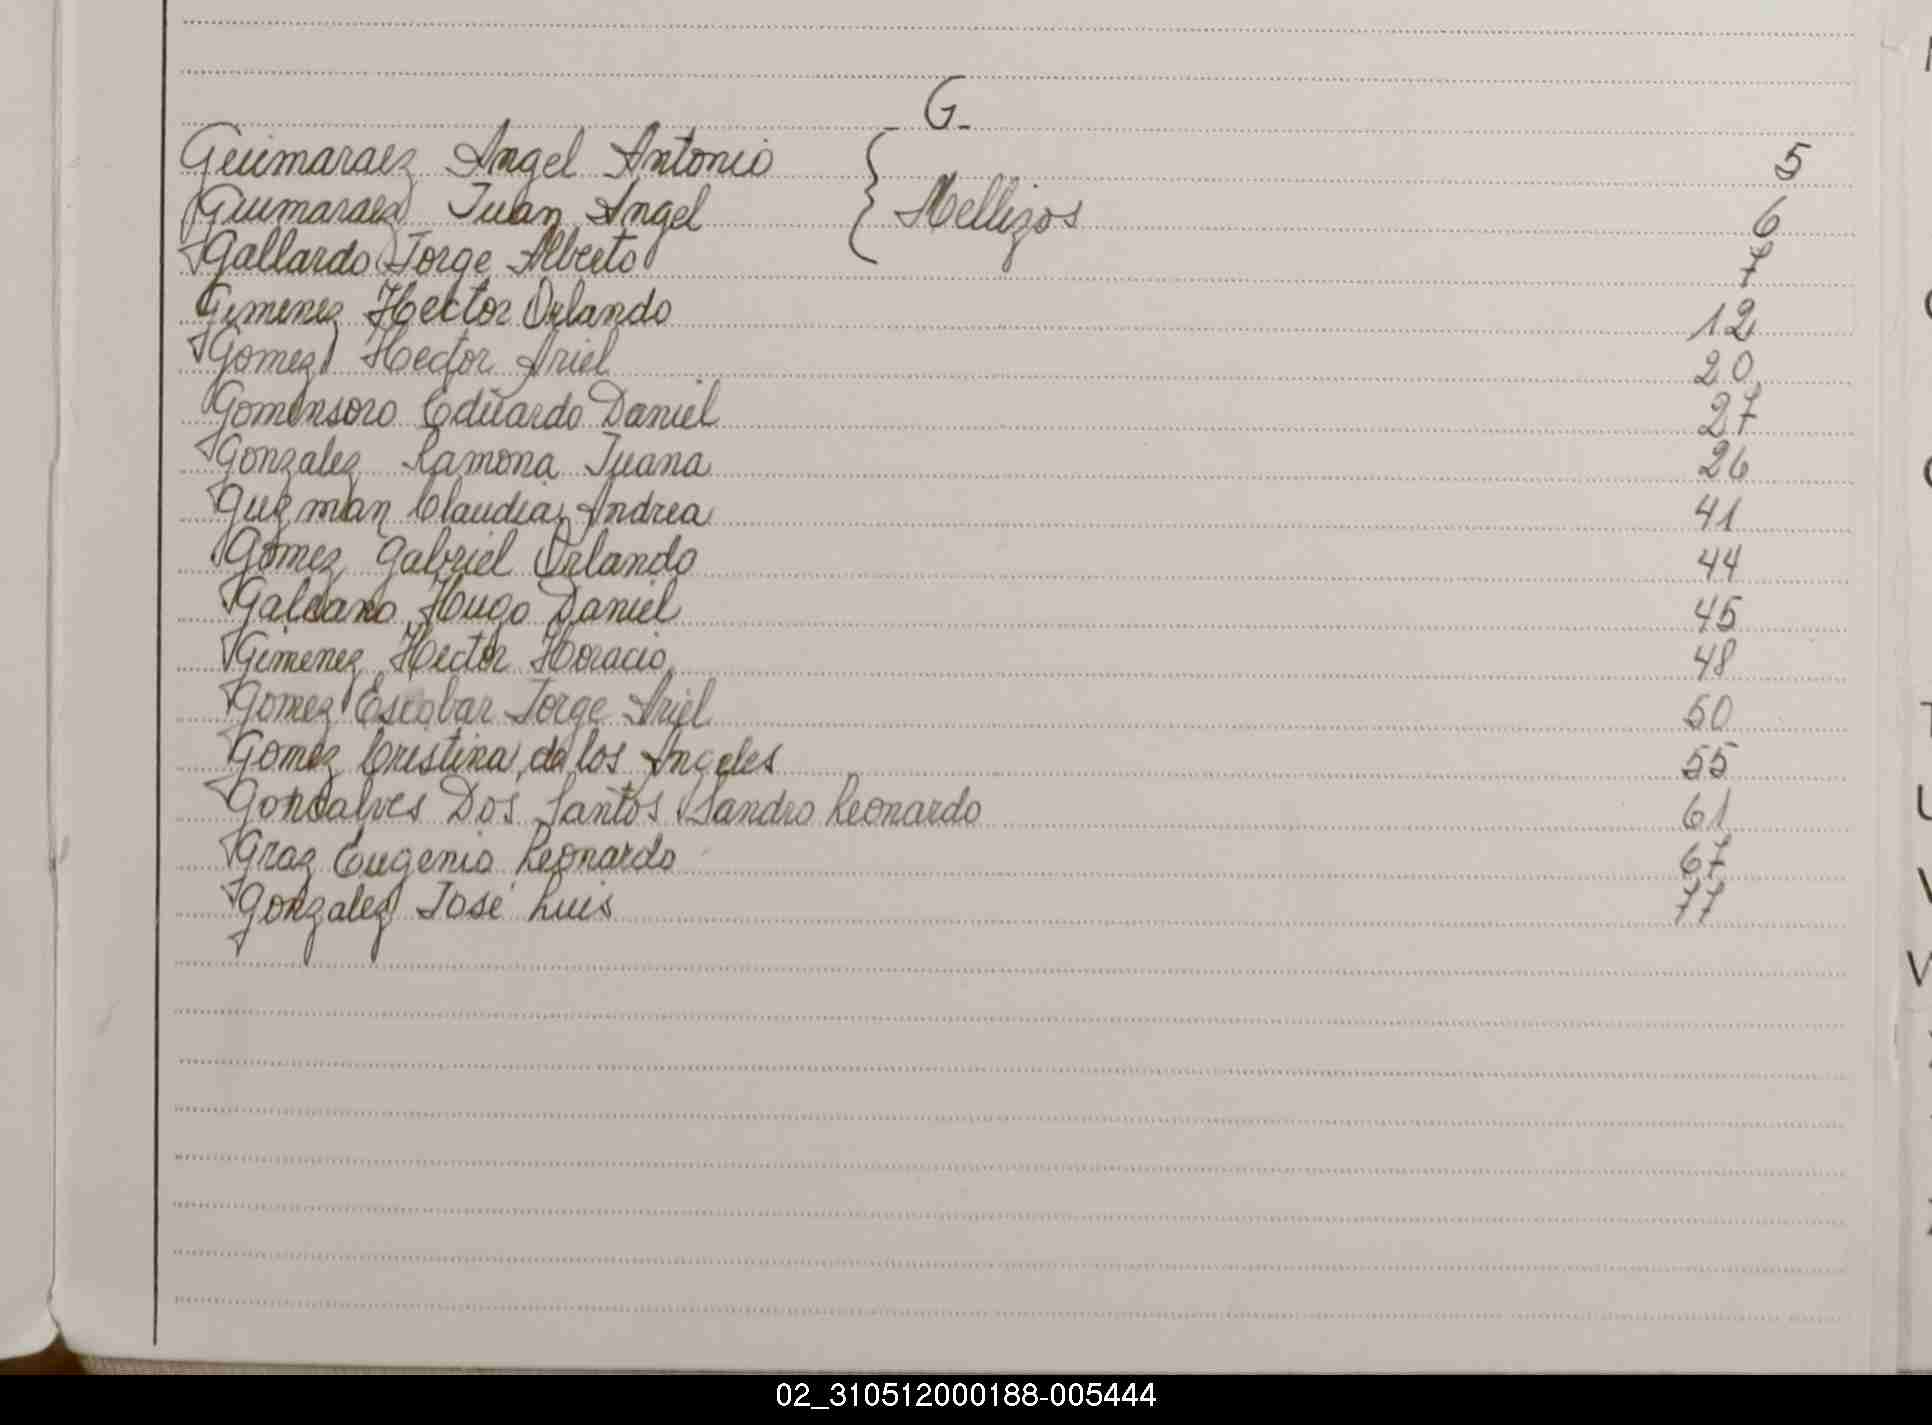 - G -
Guimaraez Angel Antonio { Mellizos 5
Guimaraez Juan Angel 6
Gallardo Jorge Alberto 7
Gimenez Hector Orlando 12
Gomez Hector Ariel 20
Gomensoro Eduardo Daniel 27
Gonzalez Ramona Juana 26
Guzman Claudia Andrea 41
Gomez Gabriel Orlando 44
Galeano Hugo Daniel 45
Gimenez Hector Horacio 48
Gomez Escobar Jorge Ariel 50
Gomez Cristina de los Angeles 55
Gonsalves Dos Santos Sandro Leonardo 61
Graz Eugenio Leonardo 67
Gonzalez José Luis 77
02_310512000188-005444